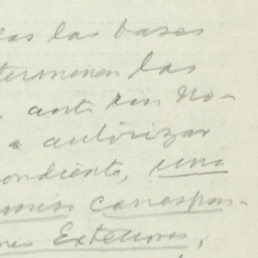 las las bases
terminen las
ante un No-
a autorizar
pondiente, una
misión correspon-
ones Exteriores,